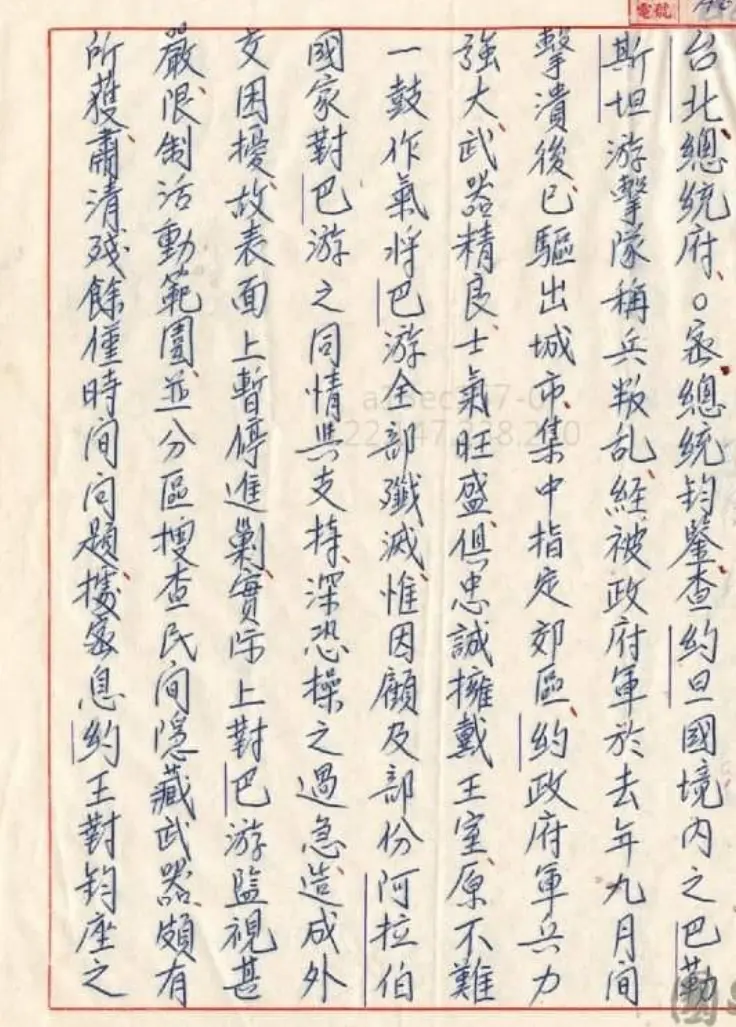 電號
台北總統府。密總統鈞鑒查約旦國境內之巴勒
斯坦游擊隊稱兵叛乱、經被政府軍於去年九月間
擊潰後已驅出城市、集中指定郊區、約政府軍兵力
強大武器精良、士氣旺盛、俱忠誠擁戴王室、原不難
一鼓作氣将巴游全部殲滅、惟因顧及部份阿拉伯
國家對巴游之同情與支持、深恐操之過急、造成外
交困擾、故表面上暫停進剿、實际上對巴游監視甚
嚴、限制活動範圍、並分區搜查民间隱藏武器、頗有
所獲、肅清残餘僅時间问題、據密息約王對鈞座之